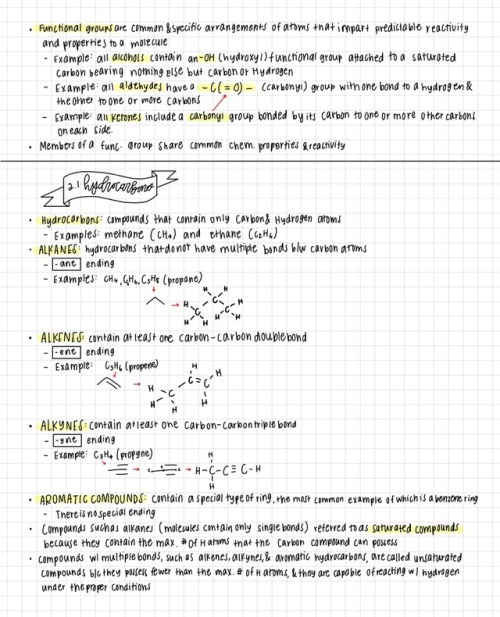 • Functional groups are common & specific arrangements of atoms that impart predictable reactivity
and properties to a molecule
- Example: all alcohols contain an -OH (hydroxyl) functional group attached to a saturated
carbon bearing nothing else but carbon or hydrogen
- Example: all aldehydes have a -C(=O)- (carbonyl) group with one bond to a hydrogen &
the other to one or more carbons
- Example: all ketones include a carbonyl group bonded by its carbon to one or more other carbons
on each side.
• Members of a func. group share common chem. properties & reactivity
2.1 hydrocarbons
• Hydrocarbons: compounds that contain only carbon & hydrogen atoms
- Examples: methane (CH4) and ethane (C2H6)
• ALKANES: hydrocarbons that do not have multiple bonds b/w carbon atoms
- -ane ending
- Examples: CH4, C2H6, C3H8 (propane)
H H
H C C H
H C H
H H
• ALKENES: contain at least one carbon-carbon double bond
- -ene ending
- Example: C3H6 (propene)
H
H C=C H
C H
H H
• ALKYNES: contain at least one carbon-carbon triple bond
- -yne ending
- Example: C3H4 (propyne)
H
H-C-C≡C-H
H
• AROMATIC COMPOUNDS: contain a special type of ring, the most common example of which is a benzene ring
- There is no special ending
• Compounds such as alkanes (molecules contain only single bonds) referred to as saturated compounds
because they contain the max. # of H atoms that the carbon compound can possess
• compounds w/ multiple bonds, such as alkenes, alkynes, & aromatic hydrocarbons, are called unsaturated
compounds b/c they possess fewer than the max. # of H atoms, & they are capable of reacting w/ hydrogen
under the proper conditions